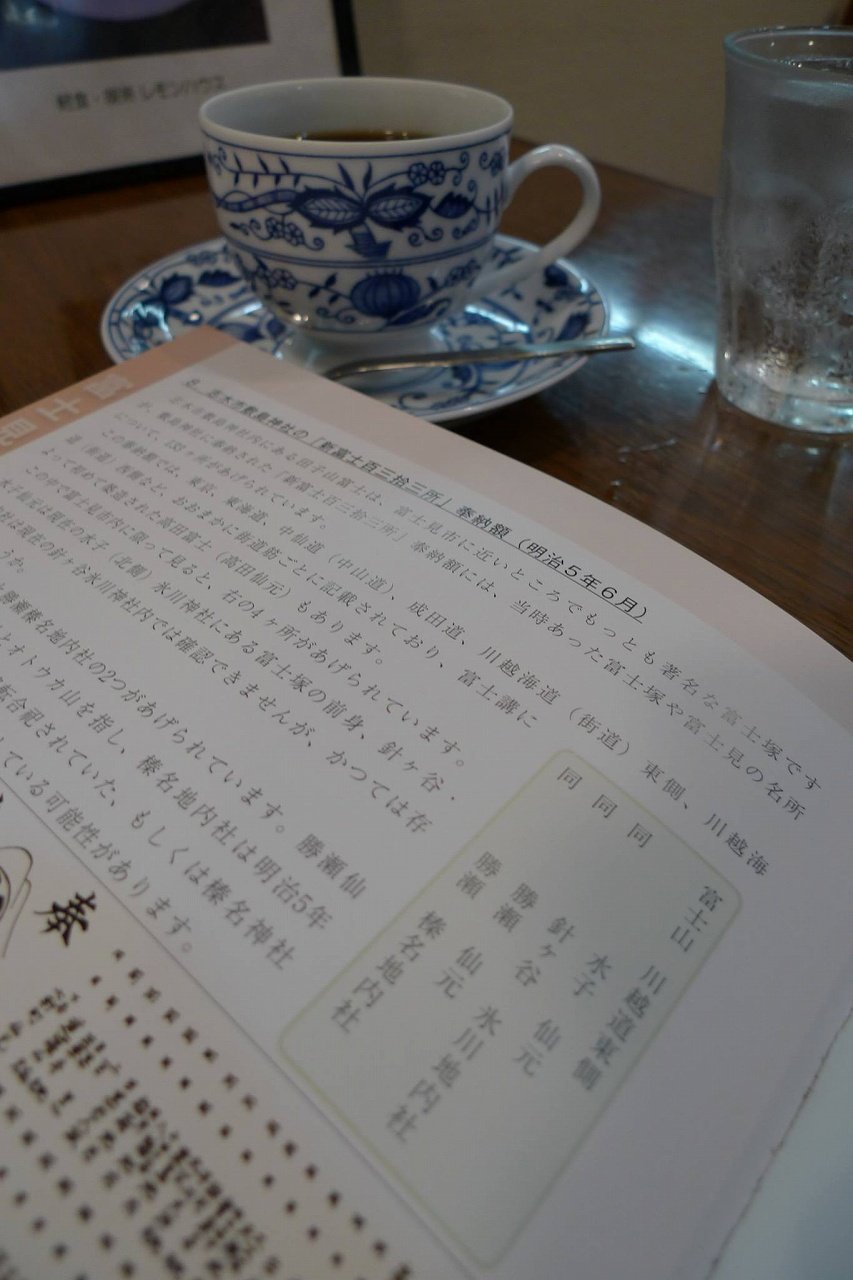 軽食・喫茶 レモンハウス
富士見
8．志木市敷島神社の「新富士百三拾三所」奉納額（明治５年６月）
志木市敷島神社内にある田子山富士は、富士見市に近いところでもっとも著名な富士塚です
が、敷島神社に奉納された「新富士百三拾三所」奉納額には、当時あった富士塚や富士見の名所
について、133ヶ所があげられています。
この奉納額では、東京、東海道、中仙道（中山道）、成田道、川越海道（街道）東側、川越海
道（街道）西側など、おおまかに街道筋ごとに記載されており、富士講に
よって初めて築造された高田富士（高田仙元）もあります。
この中で富士見市内に限って見ると、右の4ヶ所があげられています。
水子仙元は現在の水子（北側）氷川神社にある富士塚の前身、針ヶ谷・
社は現在の針ヶ谷氷川神社内では確認できませんが、かつては存
うか。
勝瀬榛名地内社の2つがあげられています。勝瀬仙
とオトウカ山を指し、榛名地内社は明治5年
転合祀されていた、もしくは榛名神社
している可能性があります。
富士山　川越道東側
同　水子　仙元
同　針ヶ谷　氷川地内社
同　勝瀬　仙元
勝瀬　榛名地内社
奉